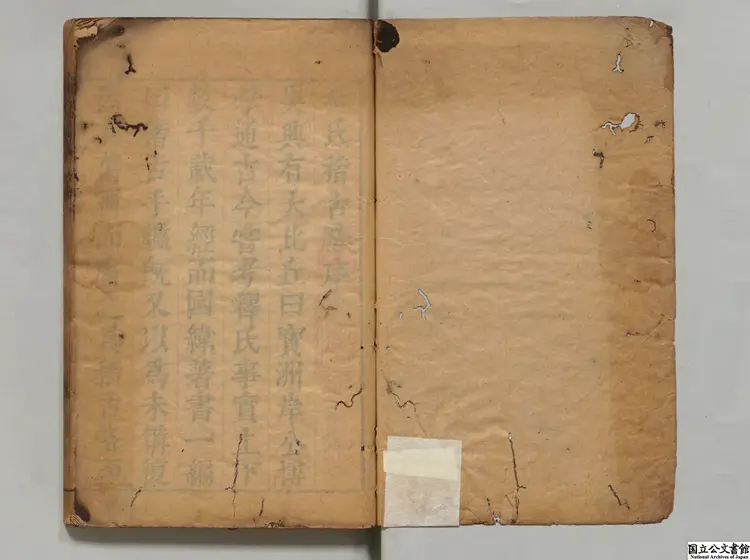 氏稽古
吳興有大比丘曰寶洲岸公博
學通古今嘗考釋氏事實上下
數千載年經而國緯著書一編
曰稽古手鑑既又以爲未備復
国立公文書館
National Archives of Japan